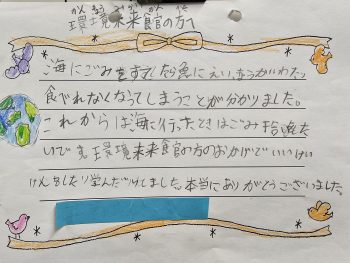 かんきょうみらいかん
環境未来食官の方へ
海にごみをすてしたら魚にえいきょうがでた
食べれなくなってしまうことが分かりました。
これからは海に行ったときはごみ拾いをした
いです。環境未来食官の方のおかげでいいけい
けんをしたり学んだりできました。本当にありがとうございました。